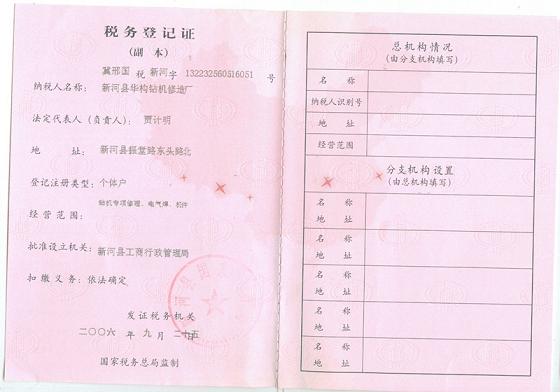 税务登记证
(副 本)
冀邢国 税 新河 字 132232560516051 号
纳税人名称： 新河县华构钻机修造厂
法定代表人（负责人）： 贾计明
地 址： 新河县振堂路东头路北
登记注册类型： 个体户
经营范围： 钻机专项修理、电气焊、机件
批准设立机关： 新河县工商行政管理局
扣缴义务： 依法确定
发证税务机关
二〇〇六 年 九 月 二十五
国家税务总局监制
总机构情况
(由分支机构填写)
名 称
纳税人识别号
地 址
经营范围
分支机构设置
(由总机构填写)
名 称
地 址
名 称
地 址
名 称
地 址
名 称
地 址
名 称
地 址